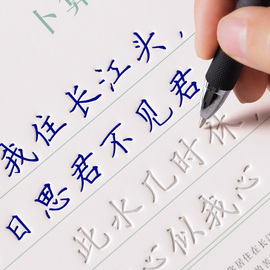 卜算
我住长江头，
日思君不见君
此水几时休，
心似我心
居住在长江